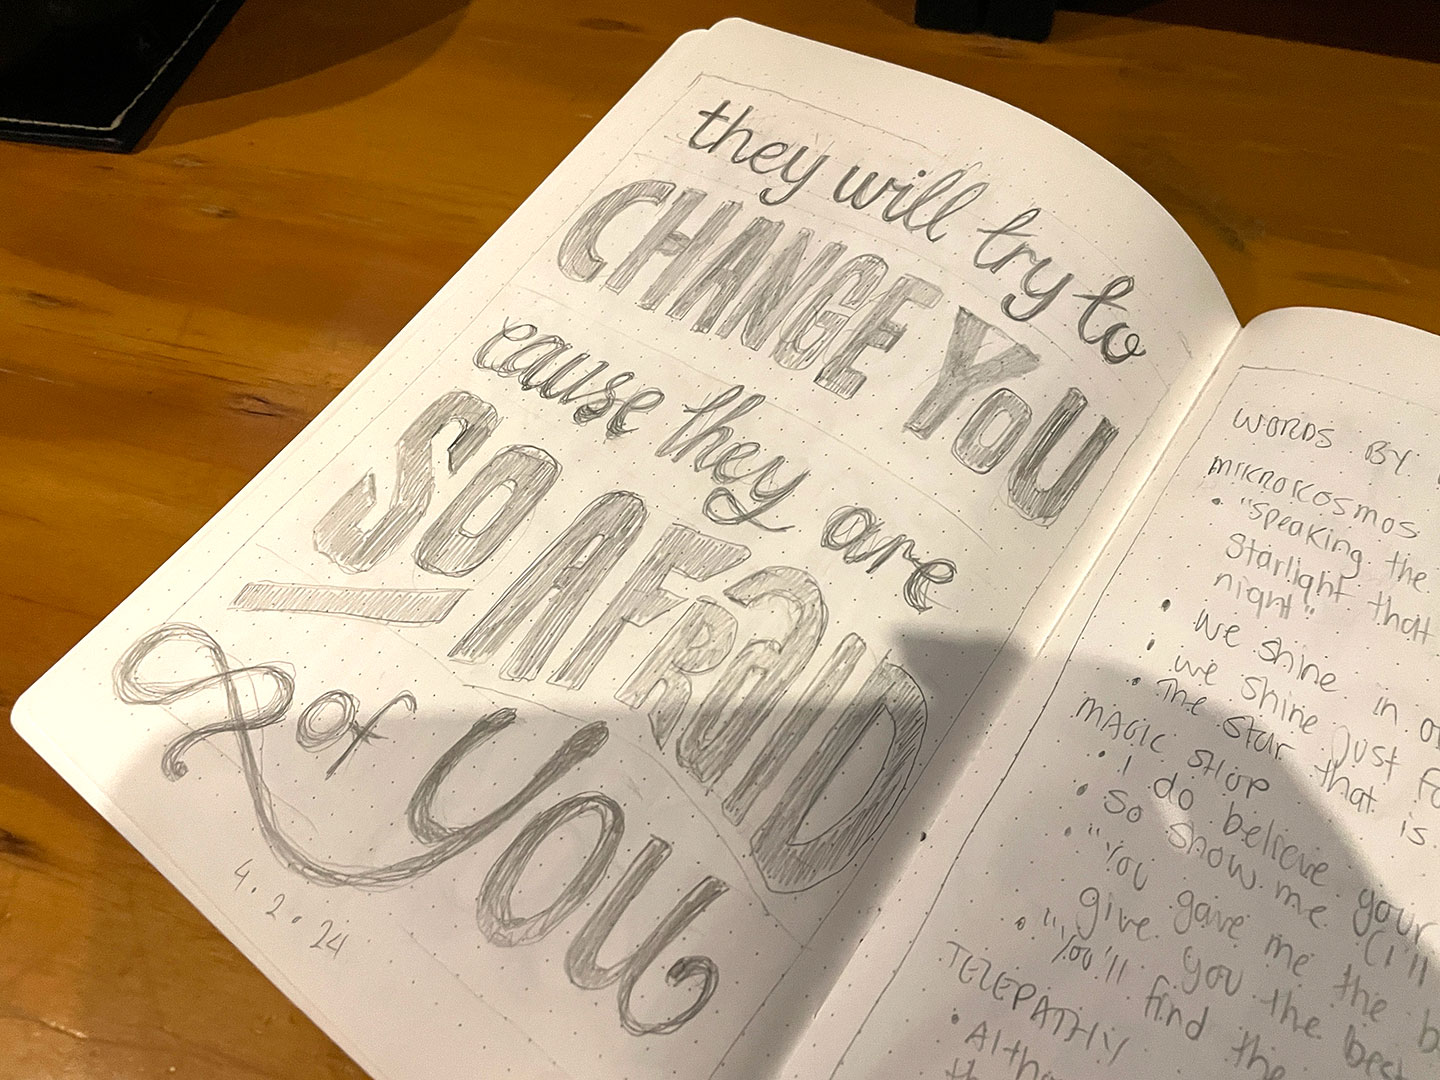 they will try to
CHANGE YOU
cause they are
SO AFRAID
of you
4.2.24
WORDS BY
MIKROKOSMOS
• "Speaking the
Starlight that
night"
• We shine in
• we shine just
• The star that is
MAGIC SHOP
• I do believe your
• So show me (I'll
• "You gave me the
give you the best
• "You'll find the
TELEPATHY
•